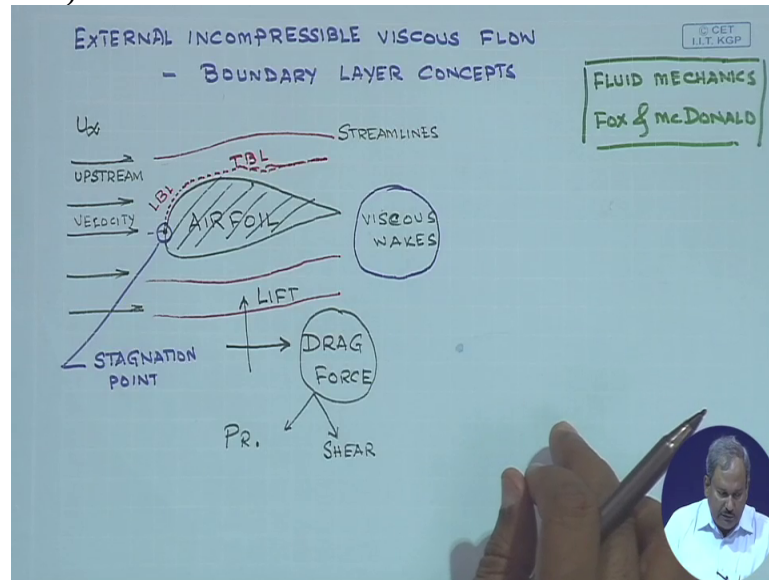 EXTERNAL INCOMPRESSIBLE VISCOUS FLOW
- BOUNDARY LAYER CONCEPTS
© CET
I.I.T. KGP
FLUID MECHANICS
FOX & MCDONALD
U∞
STREAMLINES
UPSTREAM
VELOCITY
LBL
TBL
AIRFOIL
VISCOUS
WAKES
LIFT
STAGNATION
POINT
DRAG
FORCE
PR.
SHEAR